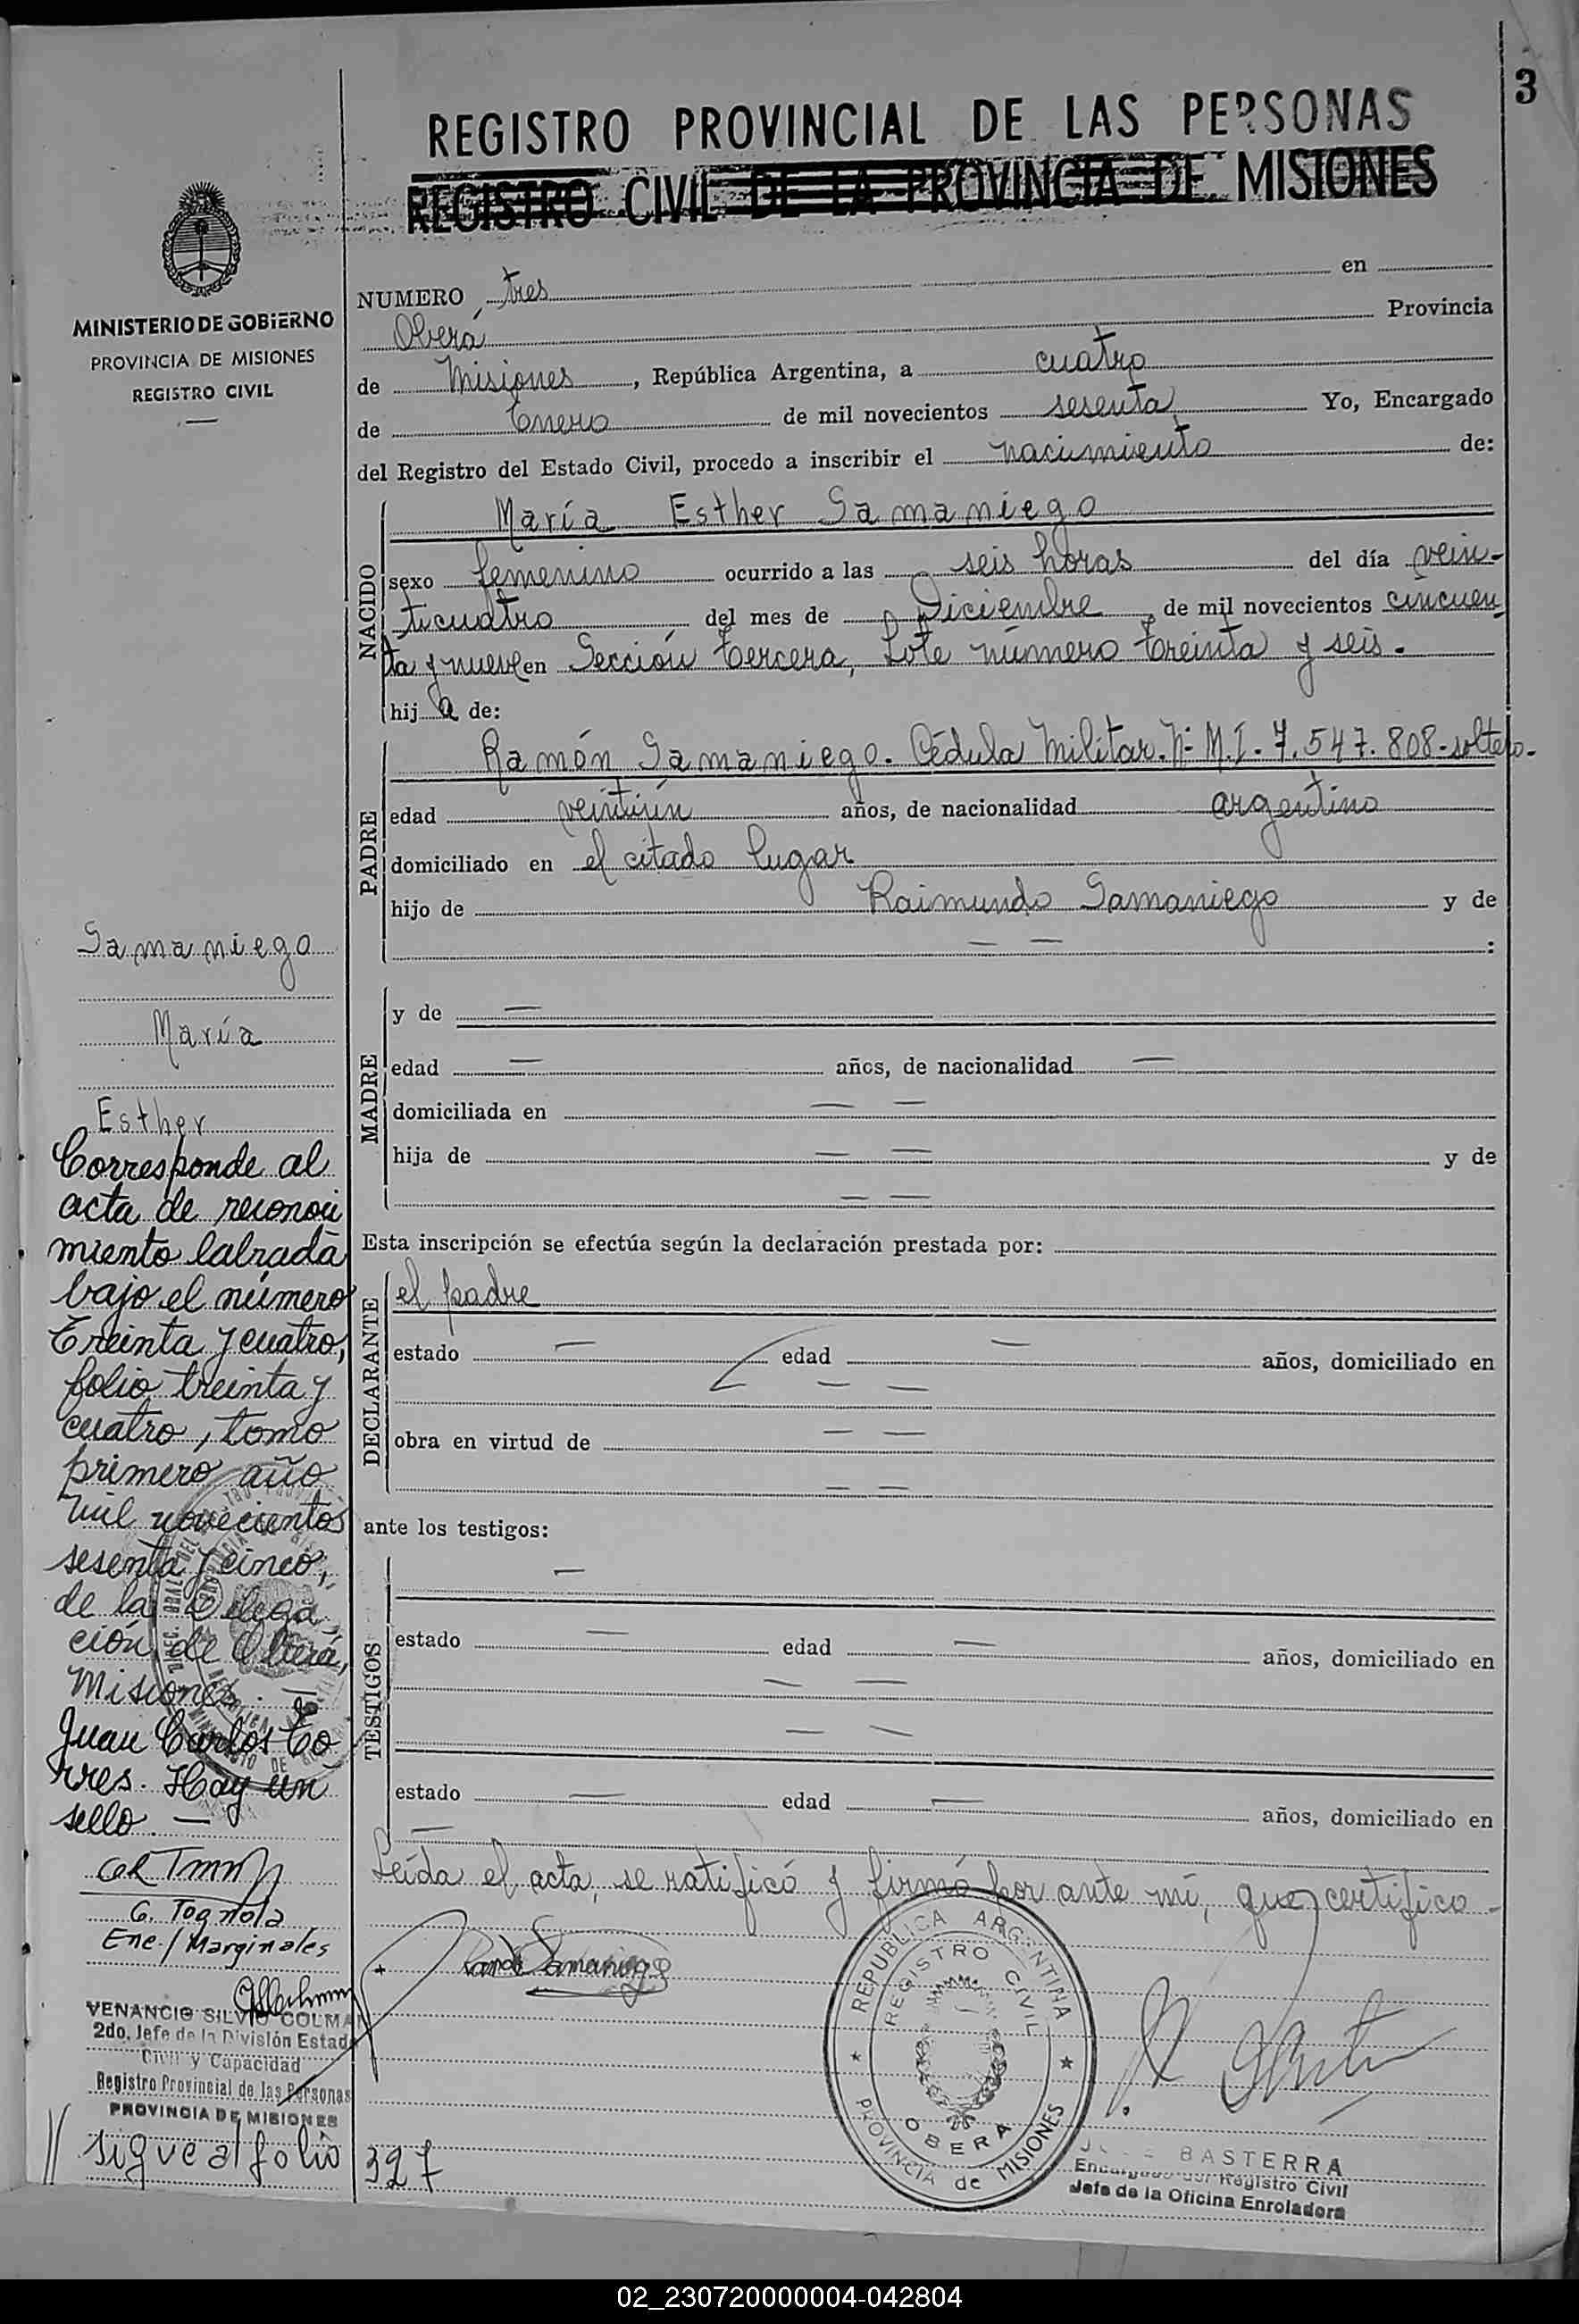 3
REGISTRO PROVINCIAL DE LAS PERSONAS
REGISTRO CIVIL DE LA PROVINCIA DE MISIONES
MINISTERIO DE GOBIERNO
PROVINCIA DE MISIONES
REGISTRO CIVIL
NUMERO tres en
Oberá Provincia
de Misiones, República Argentina, a cuatro
de Enero de mil novecientos sesenta Yo, Encargado
del Registro del Estado Civil, procedo a inscribir el nacimiento de:
NACIDO
María Esther Samaniego
sexo femenino ocurrido a las seis horas del día vein-
ticuatro del mes de Diciembre de mil novecientos cincuen
ta y nueve en Sección tercera, Lote número treinta y seis.
hij a de:
PADRE
Ramón Samaniego. Cédula Militar. Nº M.I. 7.547.808-soltero.
edad veintiún años, de nacionalidad argentino
domiciliado en el citado lugar
hijo de Raimundo Samaniego y de
— — :
MADRE
y de —
edad — años, de nacionalidad —
domiciliada en — —
hija de — — y de
— —
Esta inscripción se efectúa según la declaración prestada por:
DECLARANTE
el padre
estado — edad — años, domiciliado en
— —
obra en virtud de — —
— —
ante los testigos:
TESTIGOS
—
estado — edad — años, domiciliado en
— —
— —
estado — edad — años, domiciliado en
—
Leída el acta, se ratificó y firmó por ante mí, que certifico-
Samaniego
REPUBLICA ARGENTINA
REGISTRO CIVIL
OBERA
PROVINCIA de MISIONES
BASTERRA
Encargado del Registro Civil
Jefe de la Oficina Enroladora
Samaniego
María
Esther
Corresponde al
acta de reconoci
miento labrada
bajo el número
treinta y cuatro,
folio treinta y
cuatro, tomo
primero año
mil novecientos
sesenta y cinco,
de la Delega
ción de Oberá,
Misiones. —
Juan Carlos To
rres. Hay un
sello. —
G. Tognola
Enc./Marginales
VENANCIO SILVIO COLMAN
2do. Jefe de la División Estado
Civil y Capacidad
Registro Provincial de las Personas
PROVINCIA DE MISIONES
// sigue al folio 327
02_230720000004-042804